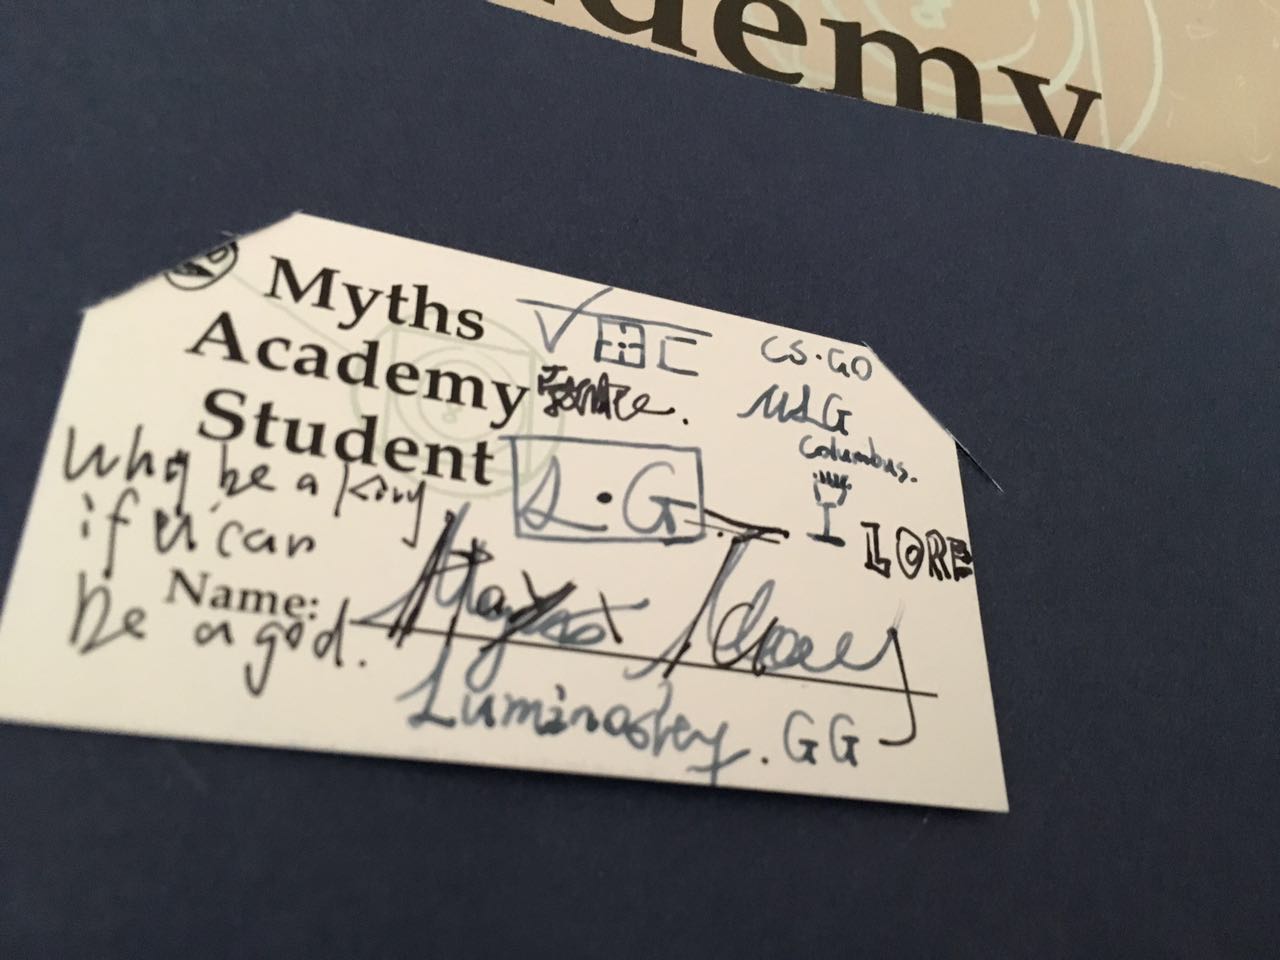 demy
Myths
Academy
Student
CS·GO
MLG
Columbus.
L·G
LORE
Why be a king
if u can
be a god.
Name:
Luminosity.GG